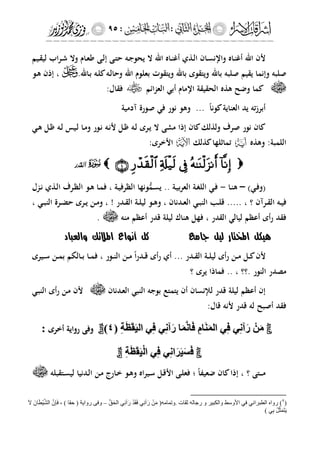 : ٩٥
لأن الله أغناه والإنسان الذي أغناه الله لا يحوجه حتى إلى طعام ولا شراب ليقيم
صلبه وإنما يقيم صلبه بالله ويتقوى بالله ويتقوت بعلوم الله وحاله كله بالله ، إذن هو
كما وضح هذه الحقيقة الإمام أبي العزائم فقال:
أبرزته يد العناية كوناً ... وهو نور في صورة آدمية
كان نور صرف ولذلك كان إذا مشى لا يرى له ظل لأنه نور وما ليس له ظل هي
اللمبة: وهذه تماثلها كذلك الأخرى:
﴿ إِنَّآ أَنزَلْنَـٰهُ فِى لَيْلَةِ ٱلْقَدْرِ ﴾
(وفي) – هنا – في اللغة العربية .. يسمُّونها الظرفية ، فما هو الظرف الذي نزل
فيه القرآن ؟ ، ..... قلب النبي العدنان ، وهو ليلة القدر ! ، ومن يرى حضرة النبي ،
فقد رأى أعظم ليالي القدر ، فهل هناك ليلة قدر أعظم منه .
هيكل المختار ليل جامع كل أنواع الملائك والعباد
لأن كل من رأى ليلة القدر ... أي رأى قدراً من النور ، فما بالكم بمن سيرى
مصدر النور .؟؟ .. فماذا يرى ؟
إن أعظم ليلة قدر للإنسان أن يتمتع بوجه النبي العدنان لأن من رأى النبي
فقد أصبح له قدر لأنه قال:
مَنْ رَآنِي فِي الْمَنَامِ فَكَأَنَّمَا رَآنِي فِي الْيَقَظَةِ (٤) وفى رواية أخرى :
فَسَيَرَانِي فِي الْيَقْظَةِ
متى ؟ ، إذا كان ضعيفاً ؛ فعلى الأقل سيراه وهو خارج من الدنيا ليستقبله
(٤) رواه الطبراني في الأوسط والكبير و رجاله ثقات .وتمامه( مَنْ رَآنِي فَقَدْ رَآنِي الحَقَّ – وفى رواية ( حقا ) ، فَإِنَّ الشَّيْطَانَ لا
يَتَمَثَّلُ بِي )